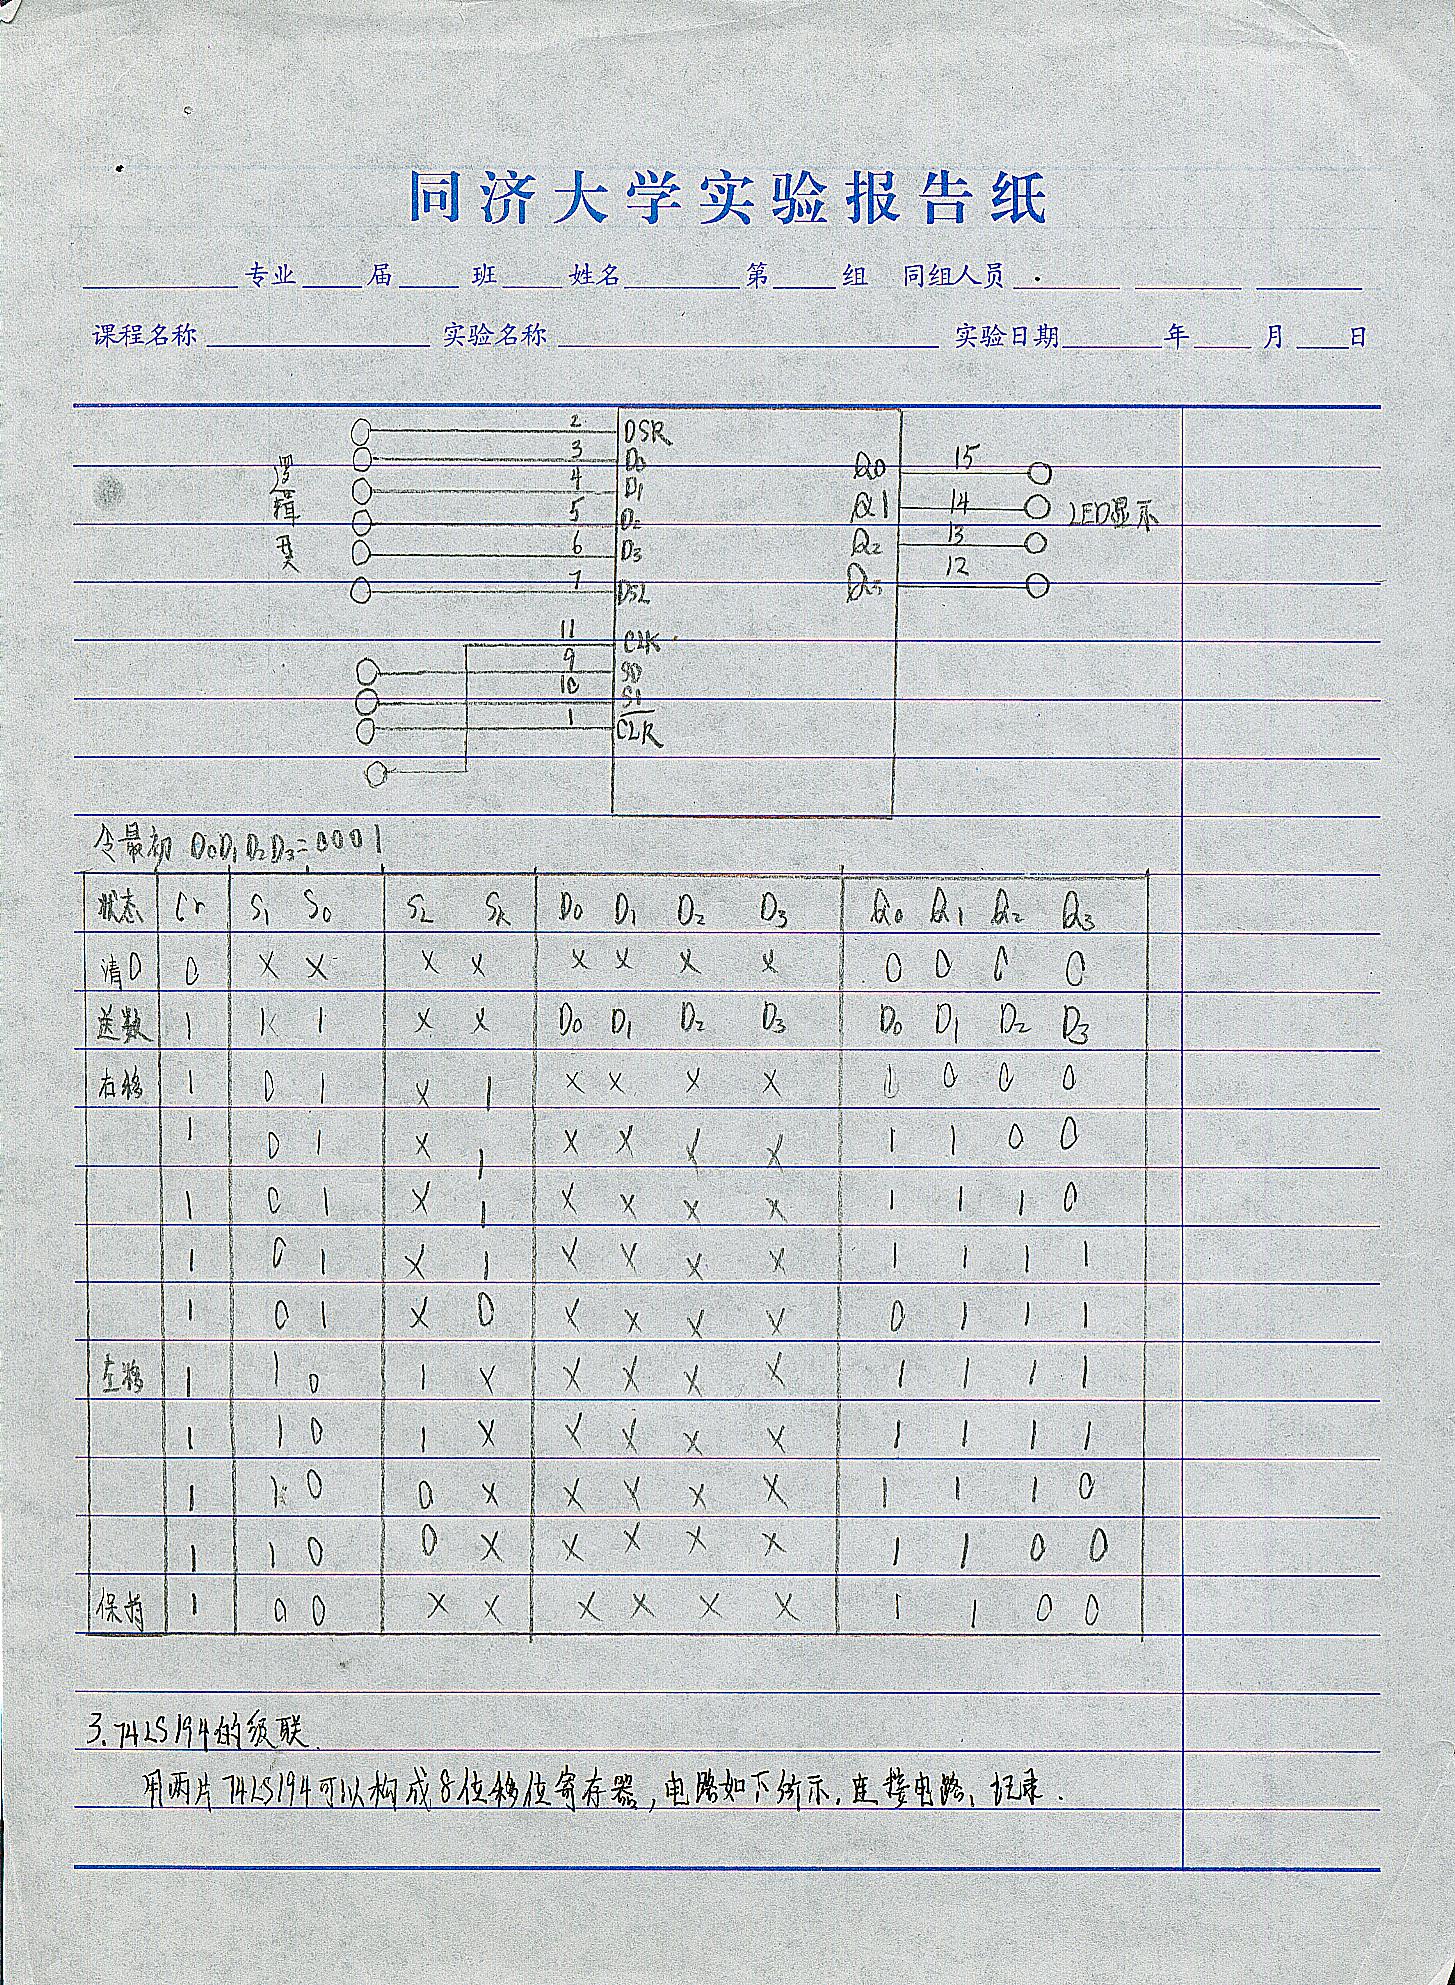 同济大学实验报告纸
专业 届 班 姓名 第 组 同组人员
课程名称 实验名称 实验日期 年 月 日
逻辑开关
2 DSR
3 D0
4 D1
5 D2
6 D3
7 DSL
11 CLK
9 S0
10 S1
1 CLR
Q0 15
Q1 14
Q2 13
Q3 12
LED显示
令最初 D0D1D2D3=0001
状态 Cr S1 S0 SL SR D0 D1 D2 D3 Q0 Q1 Q2 Q3
清0 0 × × × × × × × × 0 0 0 0
送数 1 1 1 × × D0 D1 D2 D3 D0 D1 D2 D3
右移 1 0 1 × 1 × × × × 1 0 0 0
1 0 1 × 1 × × × × 1 1 0 0
1 0 1 × 1 × × × × 1 1 1 0
1 0 1 × 1 × × × × 1 1 1 1
1 0 1 × 0 × × × × 0 1 1 1
左移 1 1 0 1 × × × × × 1 1 1 1
1 1 0 1 × × × × × 1 1 1 1
1 1 0 0 × × × × × 1 1 1 0
1 1 0 0 × × × × × 1 1 0 0
保持 1 0 0 × × × × × × 1 1 0 0
3.74LS194的级联.
用两片74LS194可以构成8位移位寄存器,电路如下所示.连接电路,记录.